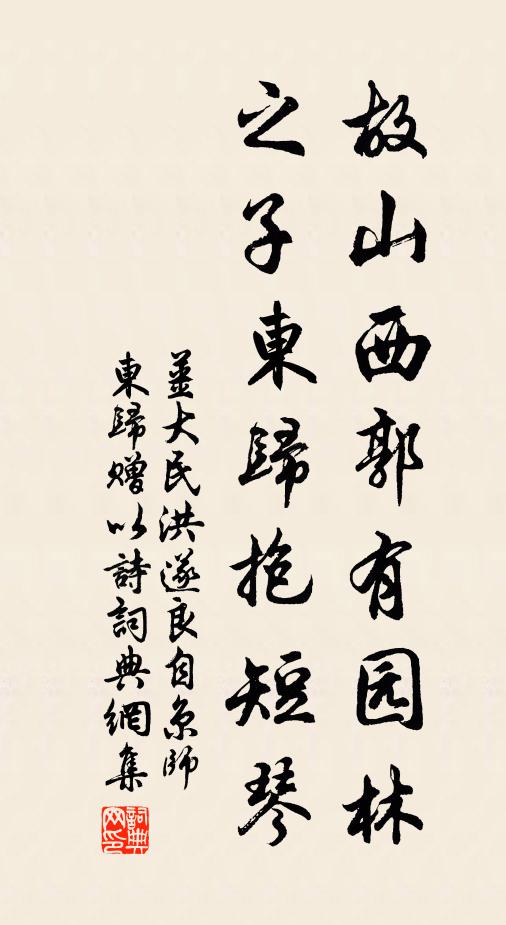 故山西郭有园林
之子東歸抱短琴
薑大民洪遂良自京師
東歸赠以詩詞典網集
詞典
网印